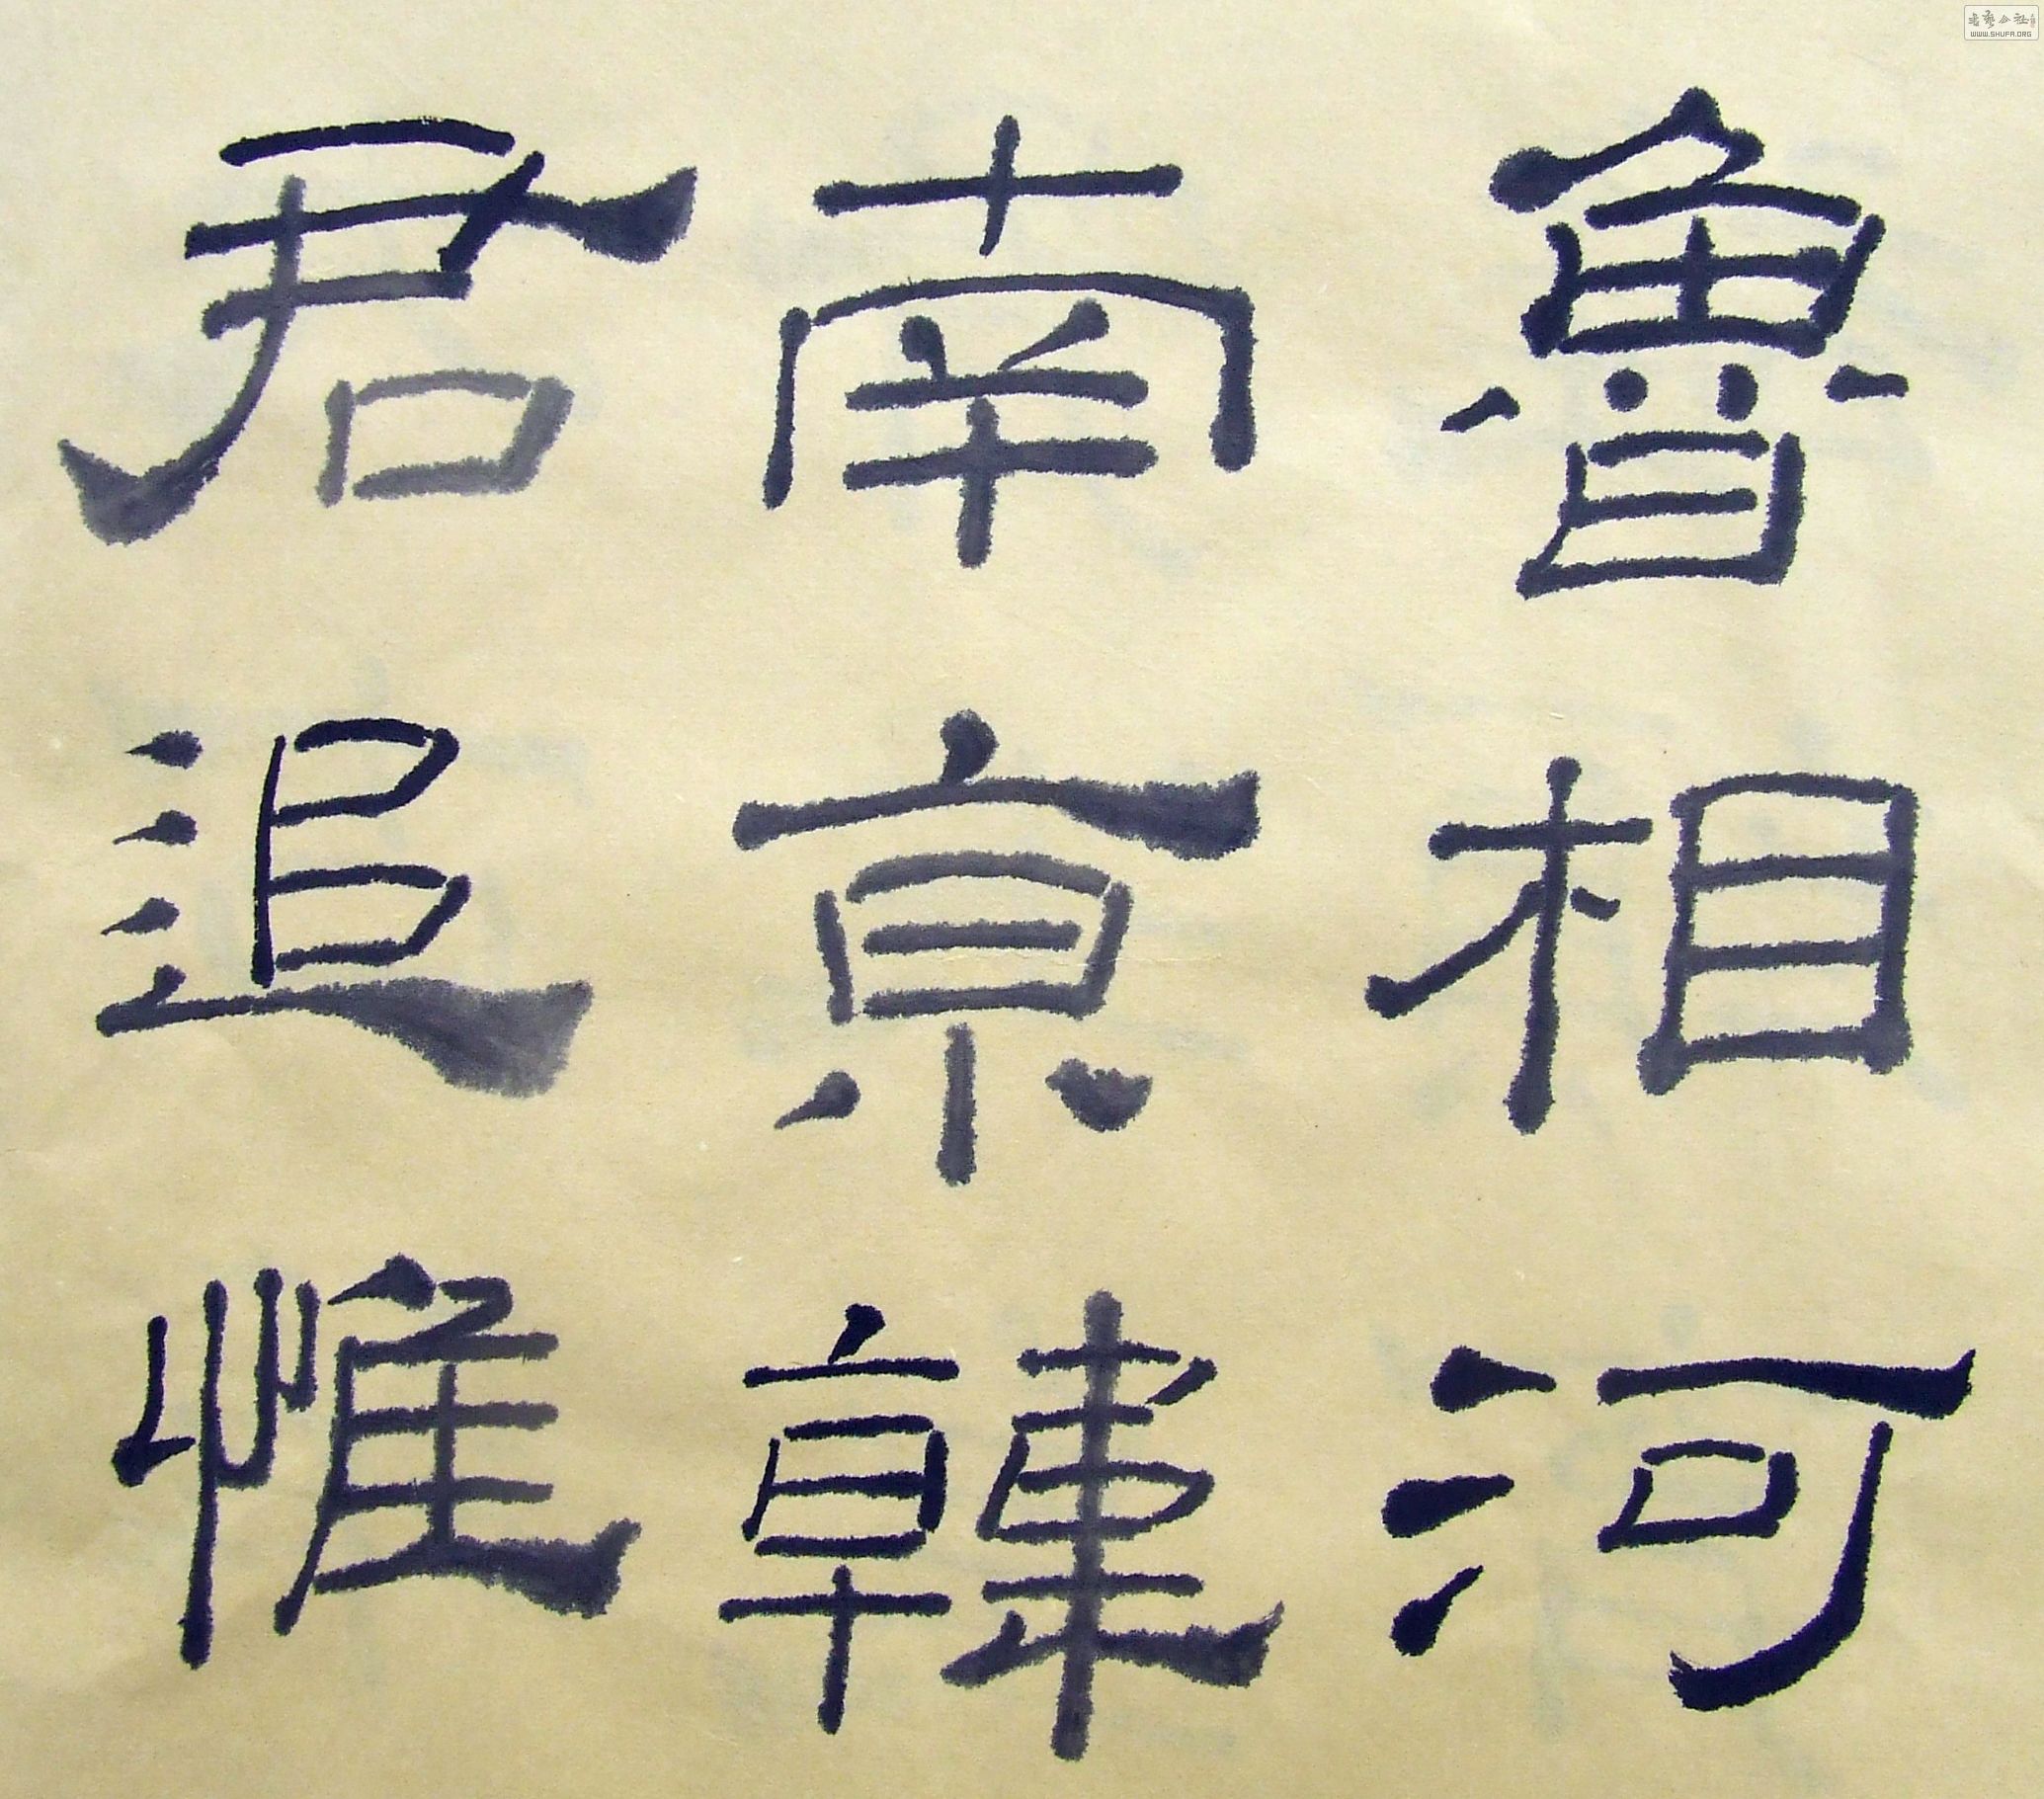 魯相河
南京韓
君追惟
书艺公社
WWW.SHUFA.ORG